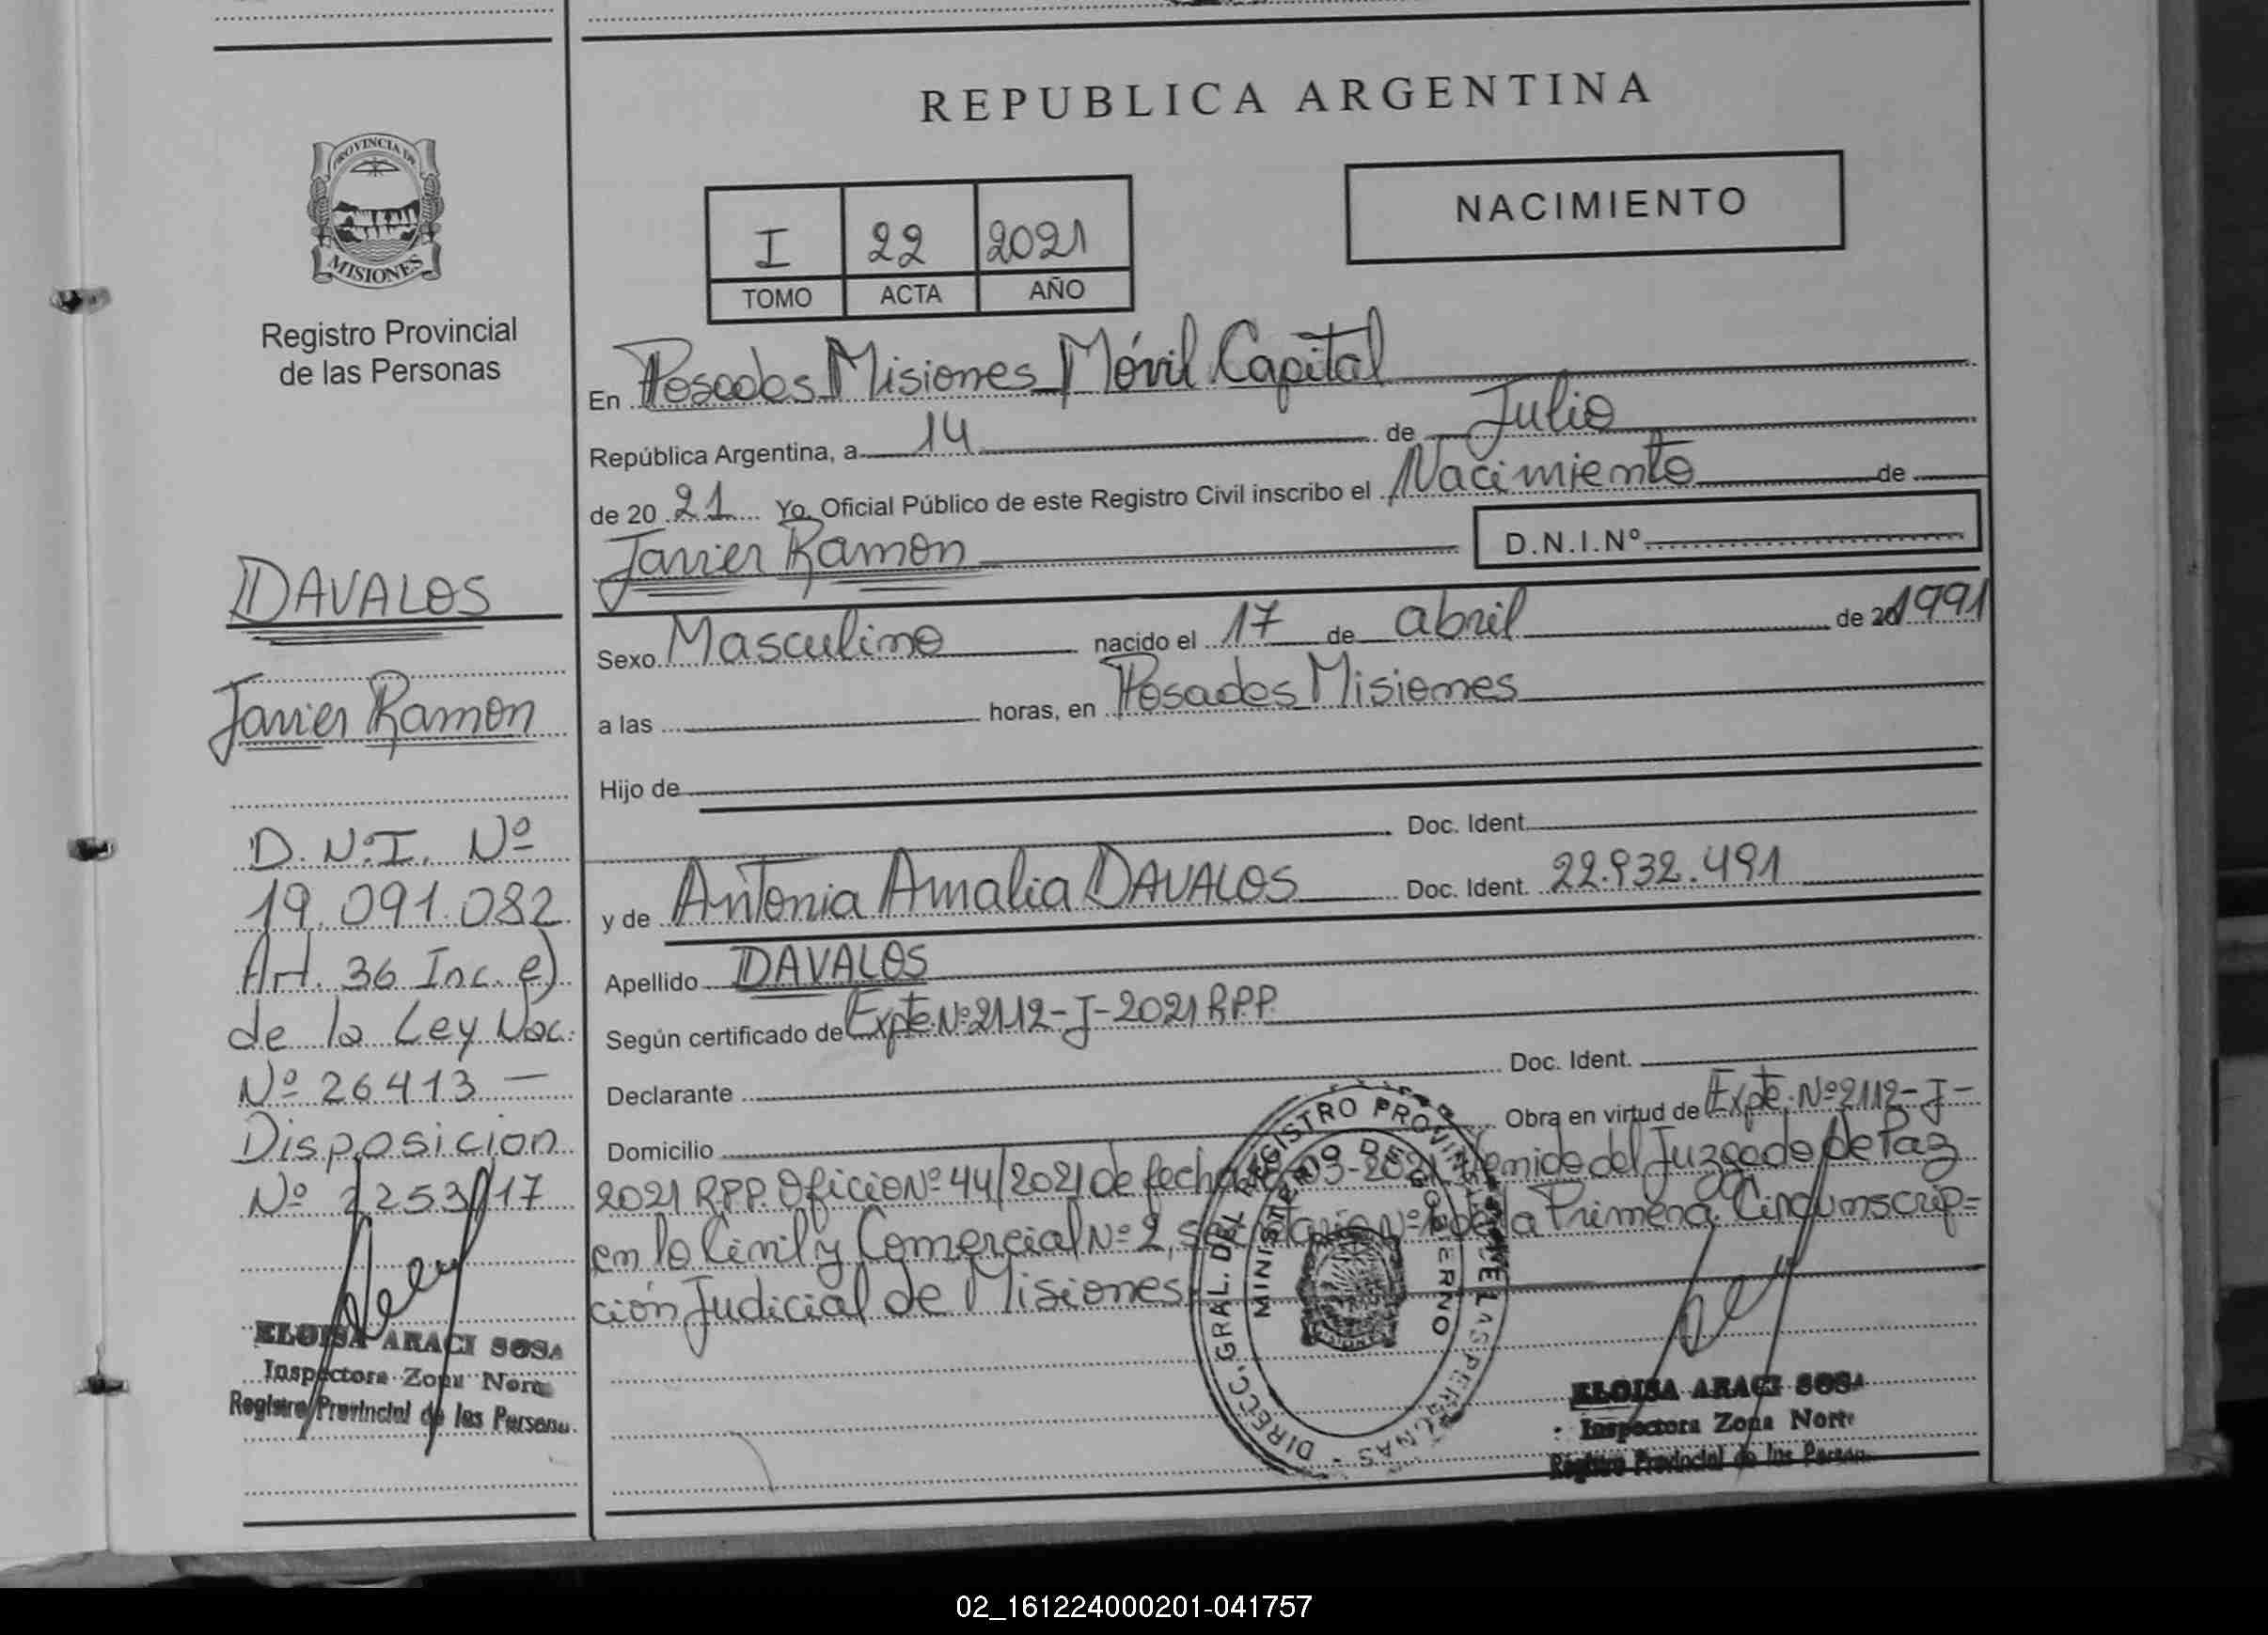 REPUBLICA ARGENTINA
PROVINCIA DE
MISIONES
Registro Provincial
de las Personas
NACIMIENTO
I 22 2021
TOMO ACTA AÑO
En Posadas Misiones Móvil Capital
República Argentina, a 14 de Julio
de 20 21 Yo, Oficial Público de este Registro Civil inscribo el Nacimiento de
Javier Ramon D.N.I.Nº
Sexo Masculino nacido el 17 de abril de 20 1991
a las horas, en Posadas Misiones
Hijo de
Doc. Ident.
y de Antonia Amalia DAVALOS Doc. Ident. 22.932.491
Apellido DAVALOS
Según certificado de Expte.Nº2112-J-2021 R.P.P.
Declarante Doc. Ident.
Domicilio Obra en virtud de Expte. Nº2112-J-
2021 R.P.P. Oficio Nº 44/2021 de fecha 03-2021 del Juzgado de Paz
en lo Civil y Comercial Nº 2, Nº de la Primera Circunscrip=
ción Judicial de Misiones
DAVALOS
Javier Ramon
D.N.I. Nº
19.091.082
Art. 36 Inc. e)
de la Ley Nac.
Nº 26413 —
Disposicion
Nº 2253/17
ELOISA ARACI SOSA
Inspectora Zona Norte
Registro Provincial de las Persona
DIRECC. GRAL. DEL REGISTRO PROVINCIAL DE LAS PERSONAS
MINISTERIO DE GOBIERNO
ELOISA ARACI SOSA
Inspectora Zona Norte
Registro Provincial de las Person
02_161224000201-041757